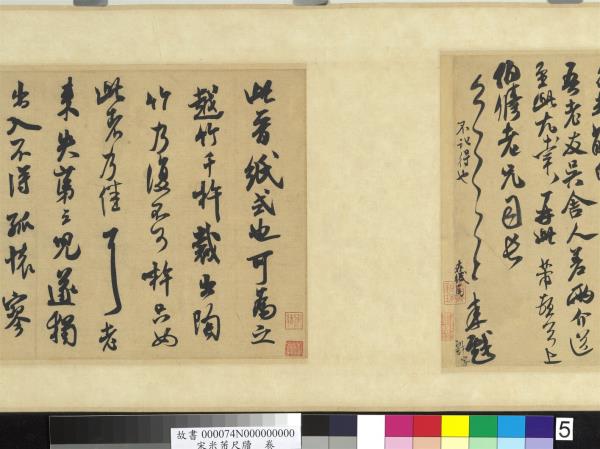 吾老友吳舍人差兩介送
至此尤幸再此芾頓首上
伯脩老兄司長
不記得也
此晉紙式也可為之
越竹千杵裁出陶
竹乃復不可杵只如
此者乃佳耳老
來失第三兒遂獨
出入不得孤懷寥
故書 000074N000000000
宋米芾尺牘 卷
5